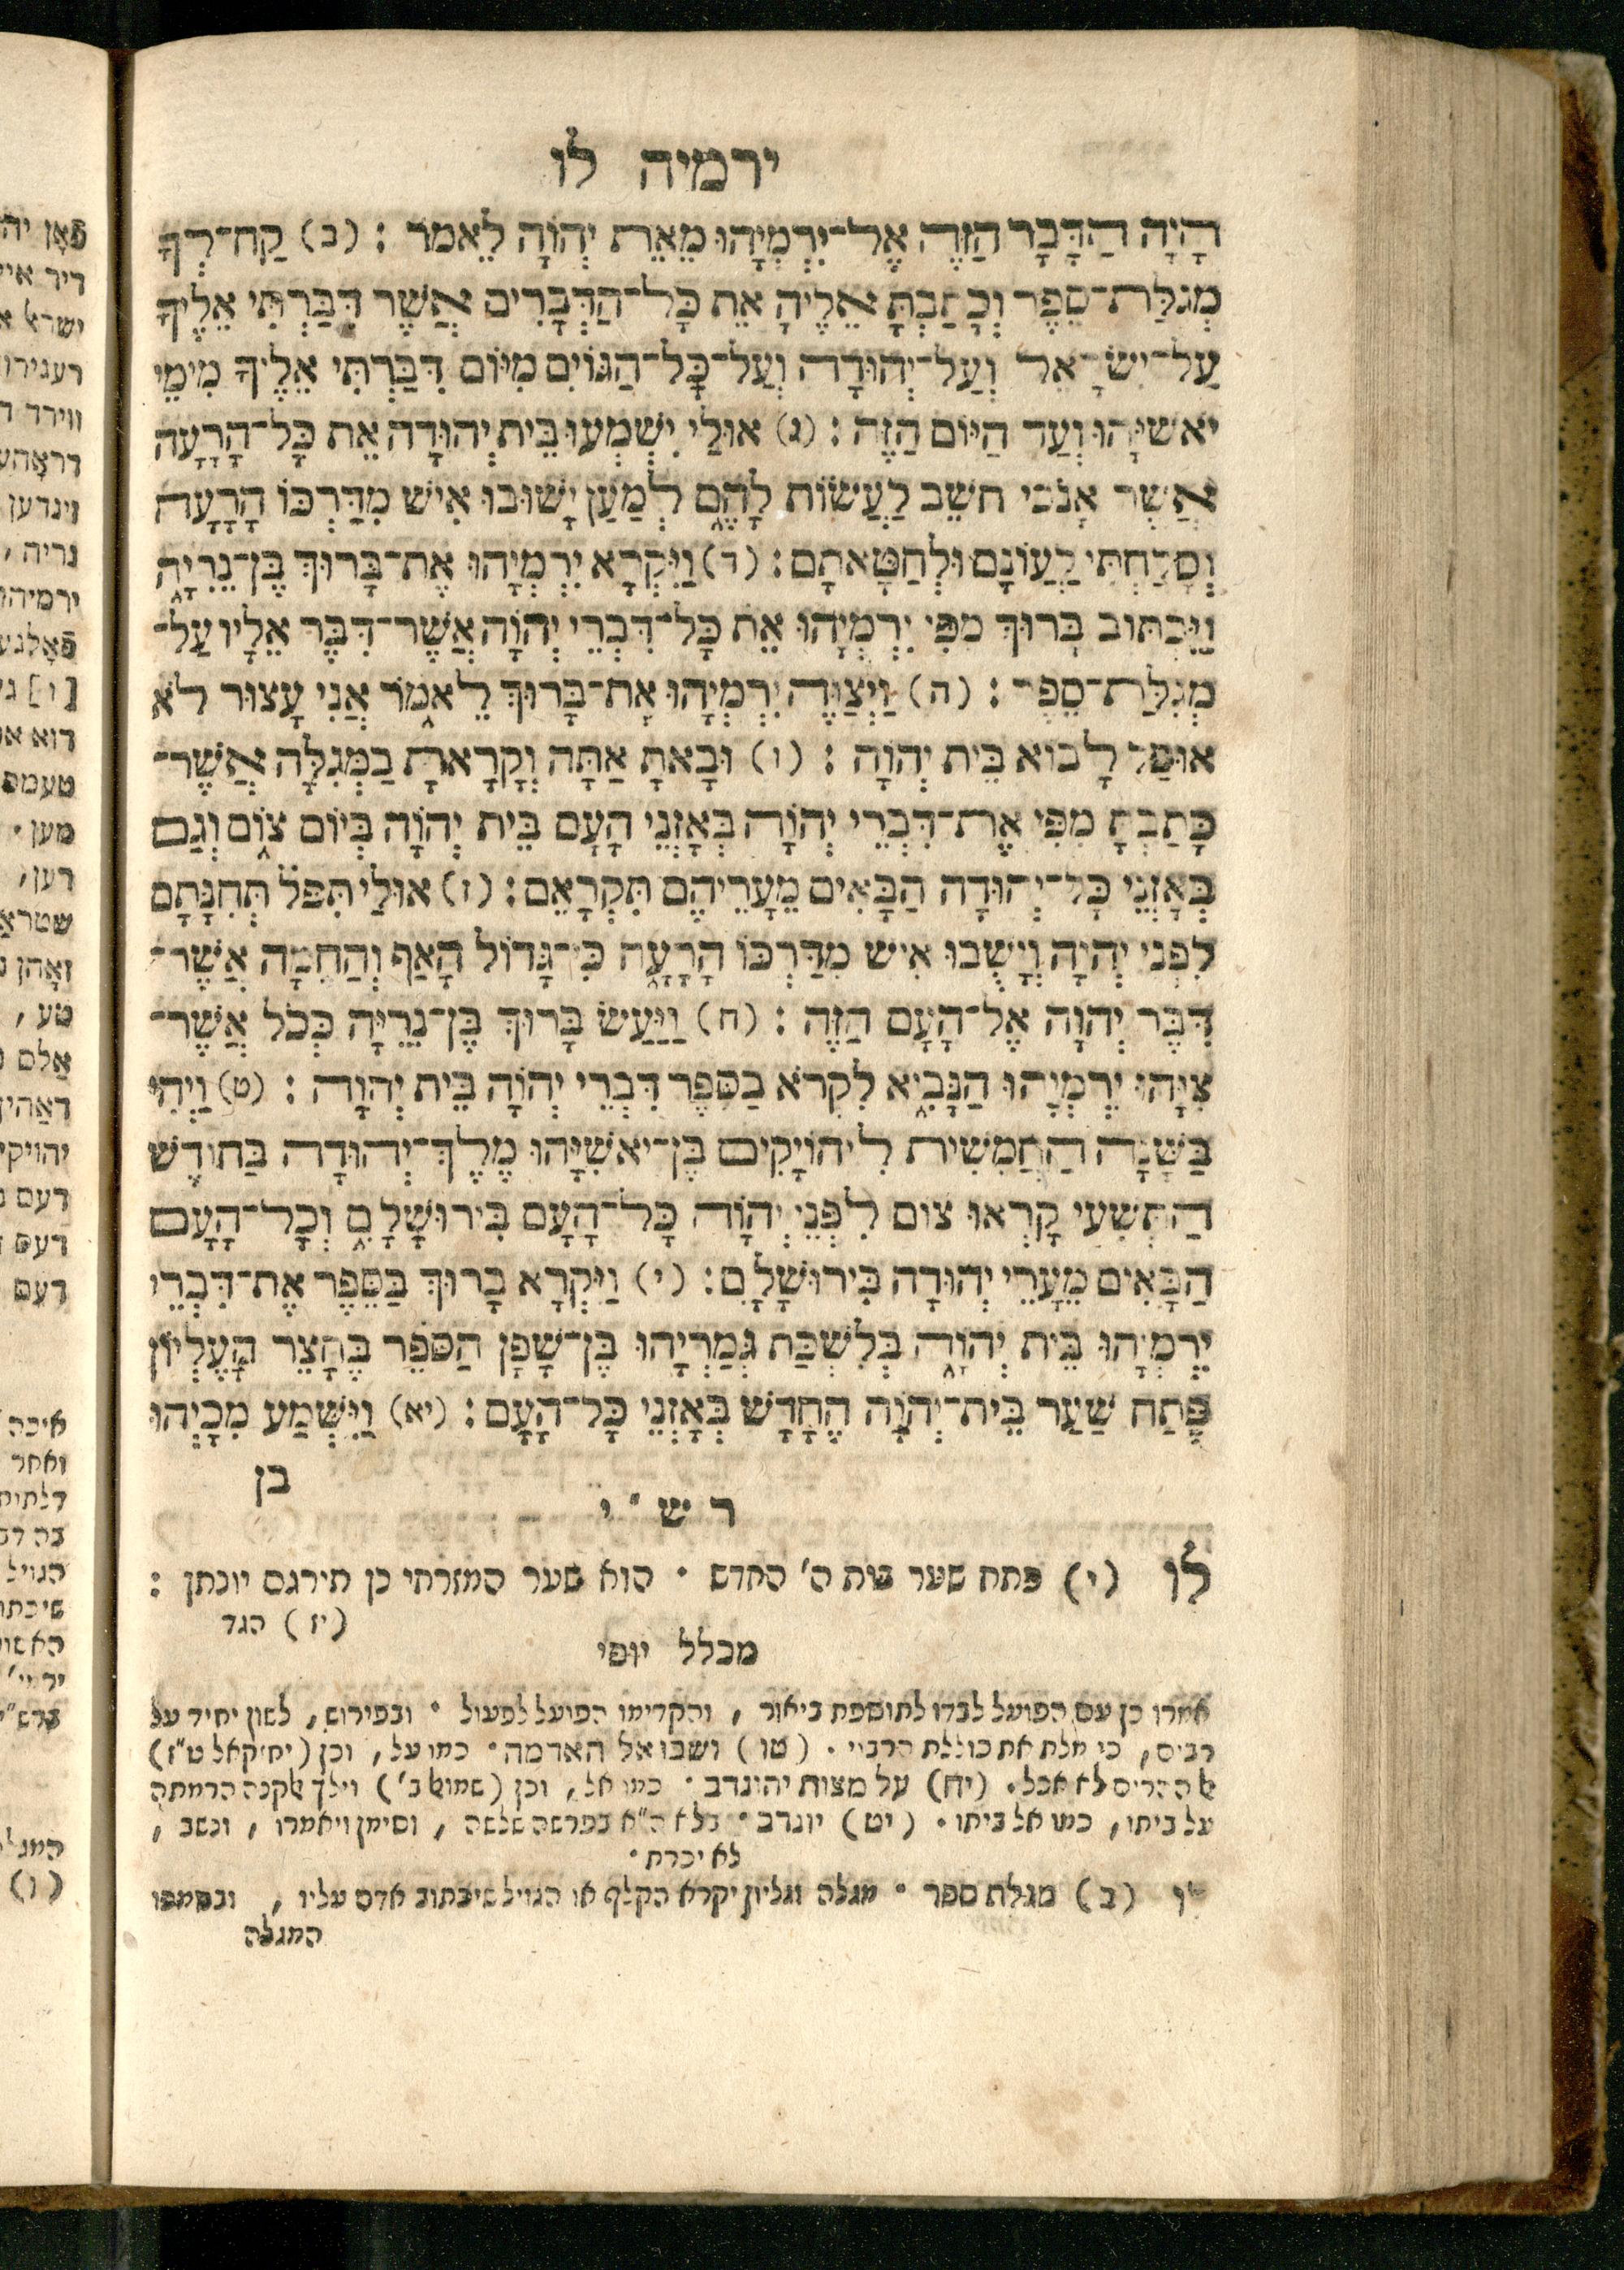 ירמיה לו
הָיָה הַדָּבָר הַזֶּה אֶל־יִרְמְיָהוּ מֵאֵת יְהוָֹה לֵאמֹר : (ב) קַח־לְךָ
מְגִלַּת־סֵפֶר וְכָתַבְתָּ אֵלֶיהָ אֵת כָּל־הַדְּבָרִים אֲשֶׁר דִּבַּרְתִּי אֵלֶיךָ
עַל־יִשְׂרָאֵל וְעַל־יְהוּדָה וְעַל־כָּל־הַגּוֹיִם מִיּוֹם דִּבַּרְתִּי אֵלֶיךָ מִימֵי
יֹאשִׁיָּהוּ וְעַד הַיּוֹם הַזֶּה : (ג) אוּלַי יִשְׁמְעוּ בֵּית יְהוּדָה אֵת כָּל־הָרָעָה
אֲשֶׁר אָנֹכִי חֹשֵׁב לַעֲשׂוֹת לָהֶם לְמַעַן יָשׁוּבוּ אִישׁ מִדַּרְכּוֹ הָרָעָה
וְסָלַחְתִּי לַעֲוֹנָם וּלְחַטָּאתָם : (ד) וַיִּקְרָא יִרְמְיָהוּ אֶת־בָּרוּךְ בֶּן־נֵרִיָּה
וַיִּכְתּוֹב בָּרוּךְ מִפִּי יִרְמְיָהוּ אֵת כָּל־דִּבְרֵי יְהוָֹה אֲשֶׁר־דִּבֶּר אֵלָיו עַל־
מְגִלַּת־סֵפֶר : (ה) וַיְצַוֶּה יִרְמְיָהוּ אֶת־בָּרוּךְ לֵאמֹר אֲנִי עָצוּר לֹא
אוּכַל לָבוֹא בֵּית יְהוָֹה : (ו) וּבָאתָ אַתָּה וְקָרָאתָ בַמְּגִלָּה אֲשֶׁר־
כָּתַבְתָּ מִפִּי אֶת־דִּבְרֵי יְהוָֹה בְּאָזְנֵי הָעָם בֵּית יְהוָֹה בְּיוֹם צוֹם וְגַם
בְּאָזְנֵי כָל־יְהוּדָה הַבָּאִים מֵעָרֵיהֶם תִּקְרָאֵם : (ז) אוּלַי תִּפֹּל תְּחִנָּתָם
לִפְנֵי יְהוָֹה וְיָשֻׁבוּ אִישׁ מִדַּרְכּוֹ הָרָעָה כִּי־גָדוֹל הָאַף וְהַחֵמָה אֲשֶׁר־
דִּבֶּר יְהוָֹה אֶל־הָעָם הַזֶּה : (ח) וַיַּעַשׂ בָּרוּךְ בֶּן־נֵרִיָּה כְּכֹל אֲשֶׁר־
צִוָּהוּ יִרְמְיָהוּ הַנָּבִיא לִקְרֹא בַסֵּפֶר דִּבְרֵי יְהוָֹה בֵּית יְהוָֹה : (ט) וַיְהִי
בַשָּׁנָה הַחֲמִשִׁית לִיהוֹיָקִים בֶּן־יֹאשִׁיָּהוּ מֶלֶךְ־יְהוּדָה בַּחוֹדֶשׁ
הַתְּשִׁעִי קָרְאוּ צוֹם לִפְנֵי יְהוָֹה כָּל־הָעָם בִּירוּשָׁלָםִ וְכָל־הָעָם
הַבָּאִים מֵעָרֵי יְהוּדָה בִּירוּשָׁלָםִ : (י) וַיִּקְרָא בָרוּךְ בַּסֵּפֶר אֶת־דִּבְרֵי
יִרְמְיָהוּ בֵּית יְהוָֹה בְּלִשְׁכַּת גְּמַרְיָהוּ בֶן־שָׁפָן הַסֹּפֵר בֶּחָצֵר הָעֶלְיוֹן
פֶּתַח שַׁעַר בֵּית־יְהוָֹה הֶחָדָשׁ בְּאָזְנֵי כָּל־הָעָם : (יא) וַיִּשְׁמַע מִכָיְהוּ
בן
רש"י
לו (י) פתח שער בית ה' החדש • הוא שער המזרחי כן תירגם יונתן :
(יז) הגד
מכלל יופי
אמרו כן עם הפועל לבדו לתוספת ביאור, והקדימו הפועל לפעול • ובפירוש, לשון יחיד על
רבים, כי מלת את כוללת הרבוי • (טו) ושבו אל האדמה • כמו על, וכן (יחזקאל ט"ז)
אל ההרים לא אכל • (יח) על מצות יהונדב • כמו אל, וכן (שמואל ב') וילך אלקנה הרמתה
על ביתו, כמו אל ביתו • (יט) יונדב • בלא ה"א בפרשה שלשה, וסימן ויאמרו, ונשב,
לא יכרת •
לו (ב) מגלת ספר • מגלה וגליון יקרא הקלף או הגויל שיכתוב אדם עליו, ובאספו
המגלה